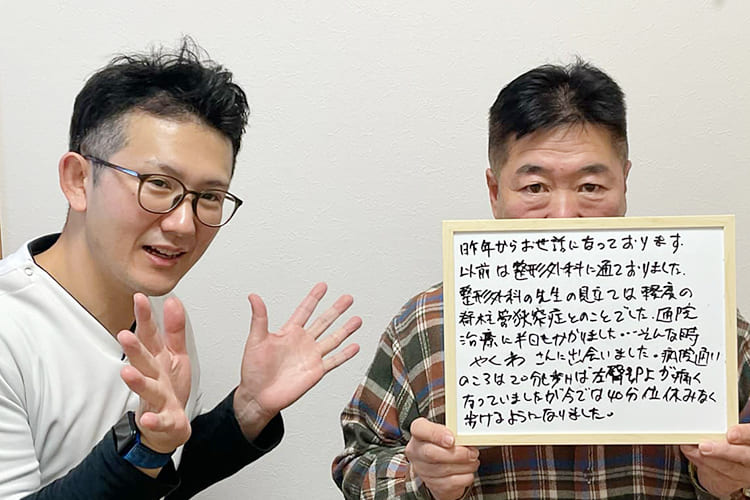 昨年からお世話になっております.
以前は整形外科に通ておりました.
整形外科の先生の見立てでは軽度の
脊柱管狭窄症とのことでした.通院
治療に半日もかかりました…そんな時
やくわ さんに出会いました。病院通い
のころは20分も歩けば左臀部が痛く
なっていましたが今では40分位休みなく
歩けるようになりました。